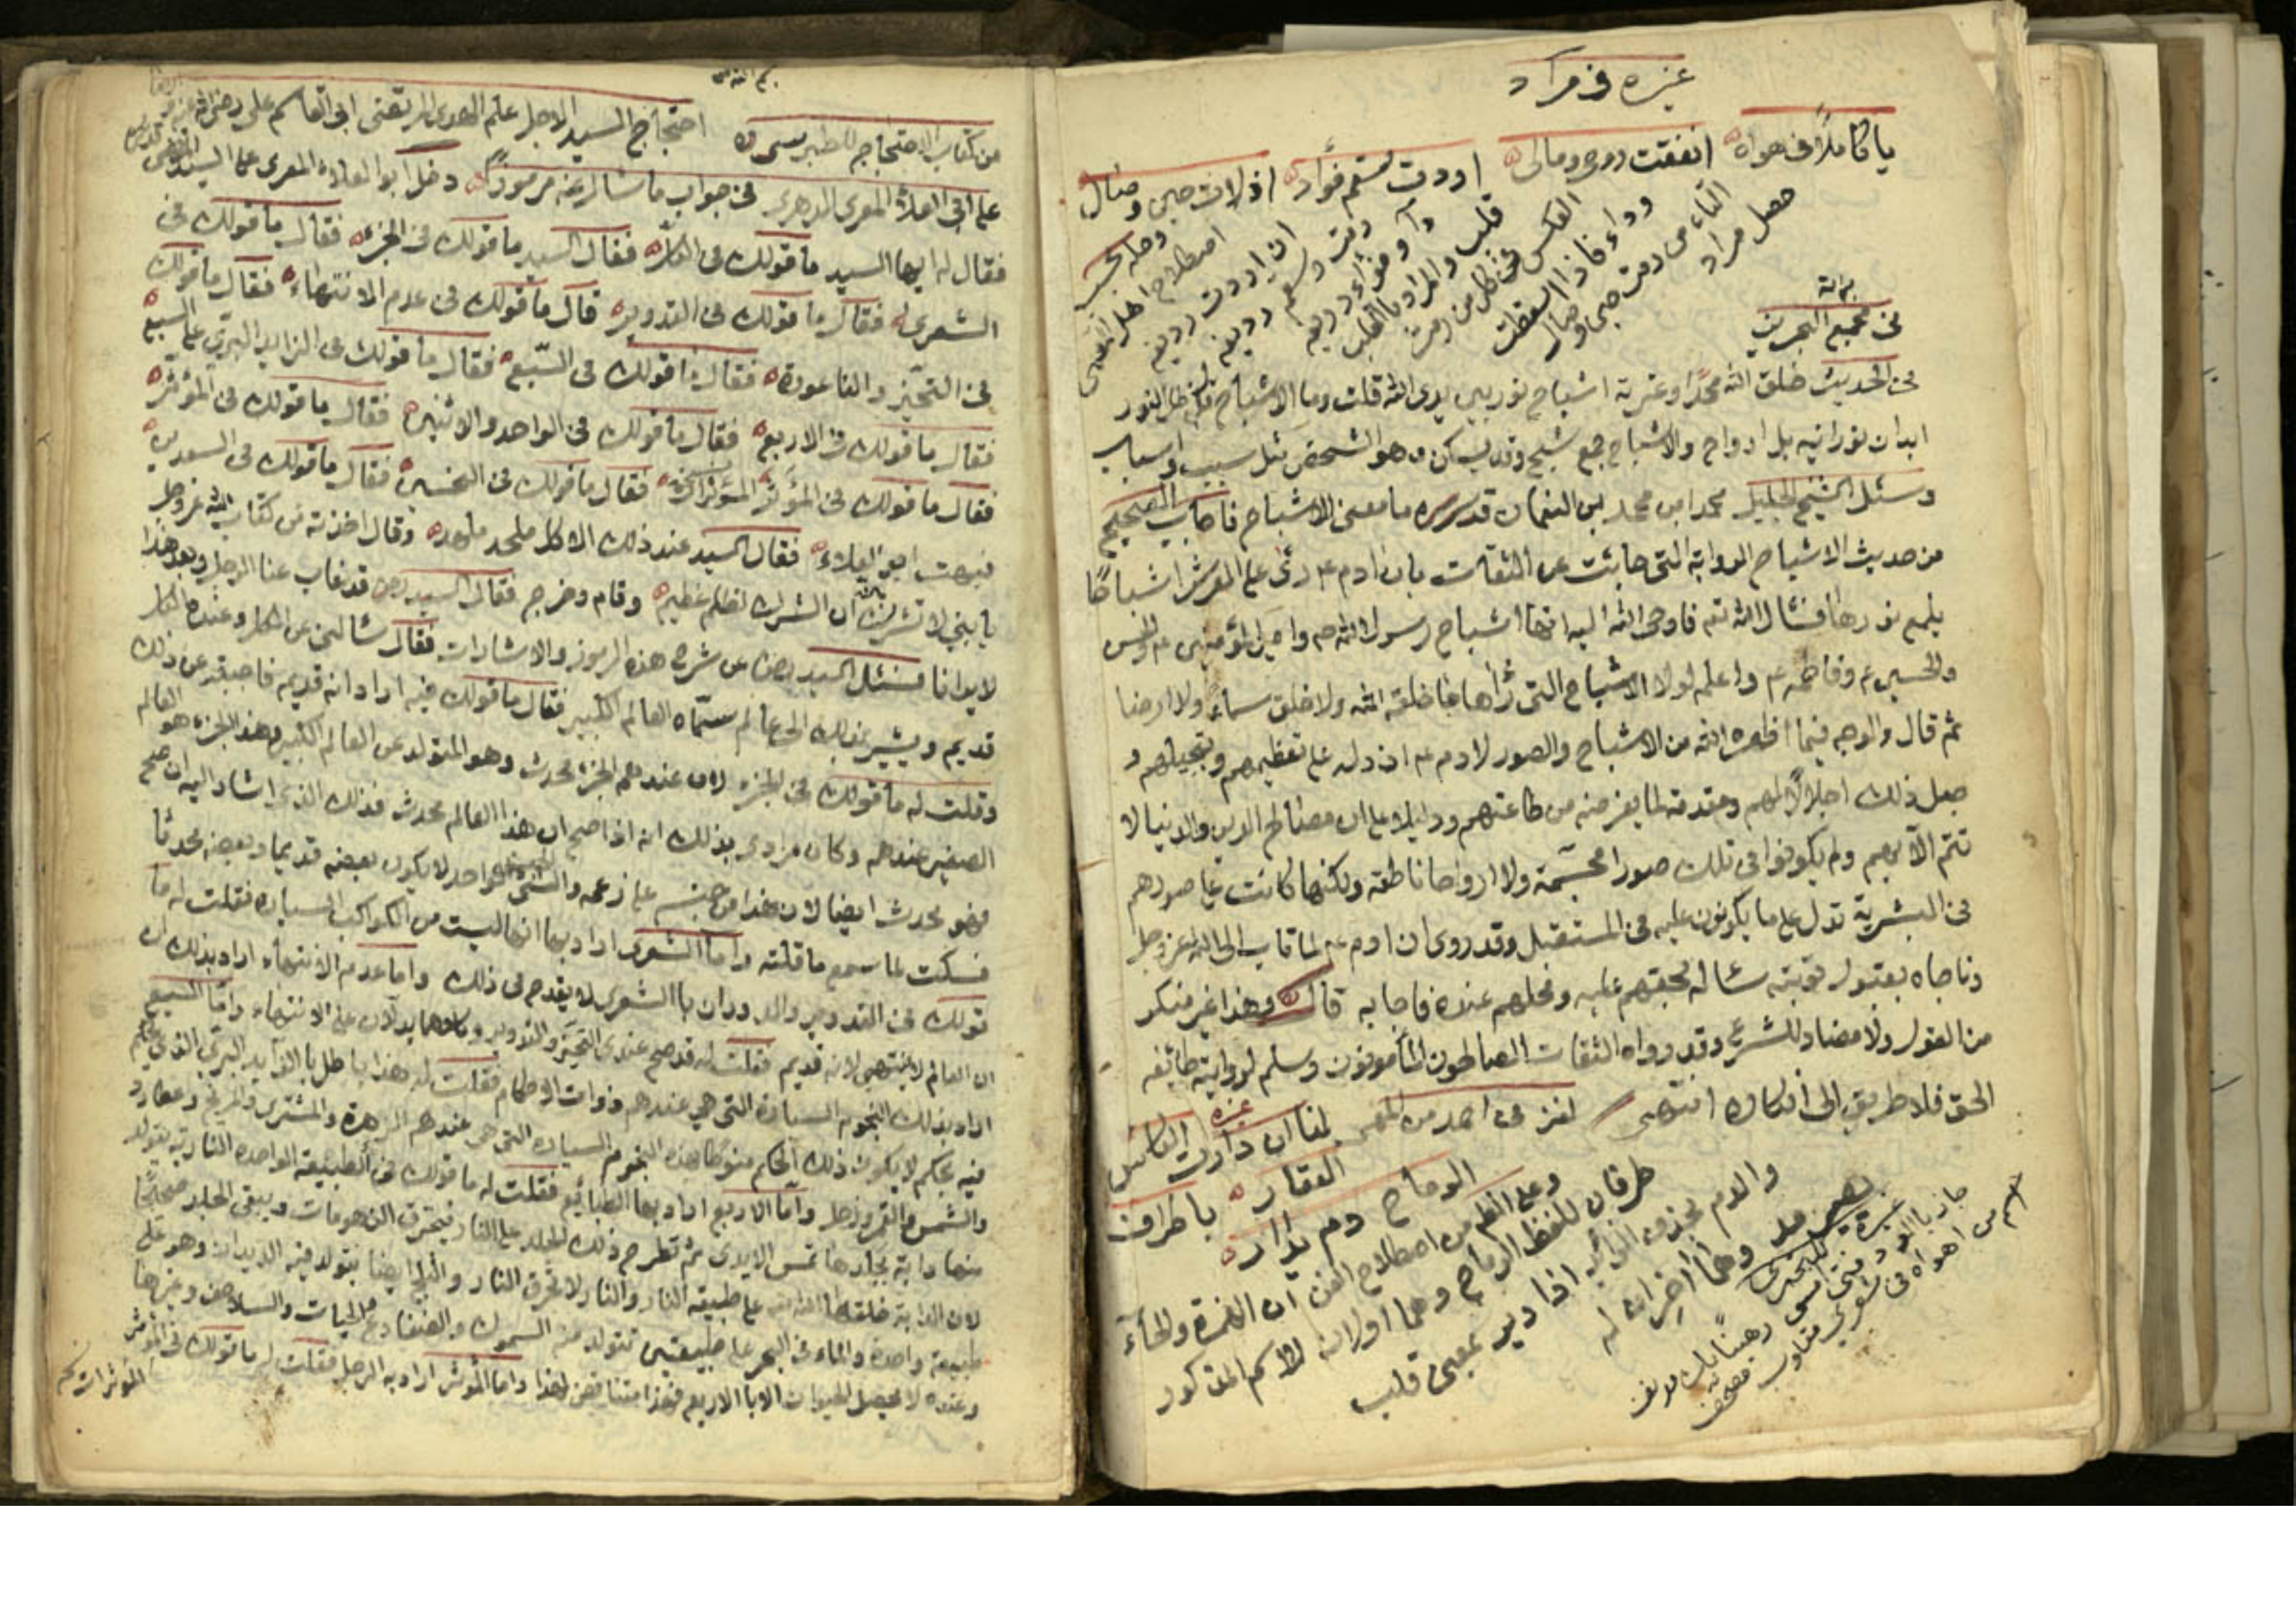 غيره في مراد
يا كاملا في هواه انفقت روحي ومالي اردت سقم فؤادي اذ لات حبي وصال
وحله بحسب
اصطلاح اهل
ان اردت رديفه
رمت وسقم رديفه
دآ وفؤاد رديفه
قلب والمراد بالقلب
العكس في كل من رمت
وداء فاذا اسقطت
التاء من رمت حبي وصال
حصل مراد
في مجمع البحرين
في الحديث خلق الله محمدا وعترته اشباح نور بين يدي الله قلت وما الاشباح قال ظل النور
ابدان نورانيه بل ارواح والاشباح جمع شبح وقد يسكن وهو الشخص مثل سبب واسباب
وسئل الشيخ الجليل محمد ابن محمد بن النعمان قدس سره ما معنى الاشباح فاجاب الصحيح
من حديث الاشباح الرواية التي جائت عن الثقات بان ادم ع رئى على العرش اشباحًا
يلمع نورها فسئال الله تع فاوحى الله اليه انها اشباح رسول الله ص وامير المؤمنين ع والحسن
والحسين ع وفاطمه ع واعلمه لولا الاشباح التي رٱها ما خلقه الله ولا خلق سماءً ولا ارضا
ثم قال والوجه فيما اظهره الله من الاشباح والصور لادم ع ان دله على تعظيمهم وتبجيلهم و
جعل ذلك اجلالًا لهم ومقدمة لما يفرضه من طاعتهم ودليلا على ان مصالح الدين والدنيا لا
تتم الا بهم ولم يكونوا في تلك صورا مجسّمة ولا ارواحا ناطقه ولكنها كانت على صورهم
في البشرية تدل على ما يكونون عليه في المستقبل وقد روى ان ادم ع لما تاب الى الله عز وجل
وناجاه بقبول توبته سئاله بحقهم عليه ومحلهم عنده فاجابه قال وهذا غير منكر
من العقول ولا مضاد للشرع وقد رواه الثقات الصالحون المأمونون وسلم لروايته طائفه
الحق فلا طريق الى انكاره انتهى لغز في احمد من المعمى لمنا ان دارت الكاس
العقار يا طراف
الرماح دم يدار
وحل النظم من اصطلاح الفن ان الهمزة والحآء
طرفان للفظ الرماح وهما اولان للاسم المذكور
والدم بحذف اذا دير بمعنى قلب
وهما اخران له
من كتاب الاحتجاج للطبرسي ره احتجاج السيد الاجل علم الهدى المرتضى ابي القاسم على رضى الله عنه
على ابي العلاء المعري الدهري في جواب ما سئال عنه مرموزًا دخل ابو العلاء المعري على السيد المرتضى
فقال له ايها السيد ما قولك في الكل فقال السيد ما قولك في الجزء فقال ما قولك في
الشعرى فقال ما قولك في التدوير قال ما قولك في عدم الانتهاء فقال ما قولك
في التحيز والناعورة فقال ما قولك في السّبع فقال ما قولك في الزايد البري على السبع
فقال ما قولك في الاربع فقال ما قولك في الواحد والاثنين فقال ما قولك في المؤثر
فقال ما قولك في المؤثر المؤثرات فقال ما قولك في النحسين فقال ما قولك في السعدين
فبهت ابو العلاء فقال السيد عند ذلك الا كل ملحد ملهد وقال اخذته من كتاب الله عز وجل
يا بني لا تشرك بالله ان الشرك لظلم عظيم وقام وخرج فقال السيد رض قد غاب عنا الرجل وبعد هذا
لا يرانا فسئل السيد رض عن شرح هذه الرموز والاشارات فقال سئالني عن الكل وعنده الكل
قديم ويشير بذلك الى عالم سمّاه العالم الكبير فقال ما قولك فيه اراد انه قديم فاجبته عن ذلك
وقلت له ما قولك في الجزء لان عندهم الجزء محدث وهو المتولد عن العالم الكبير وهذا الجزء هو العالم
الصغير عندهم وكان مرادي بذلك انه اذا صح ان هذا العالم محدث فذلك الذي اشار اليه ان صح
فهو محدث ايضا لان هذا من جنسه على زعمه والشي الواحد لا يكون بعضه قديما وبعضه محدثا
فسكت لما سمع ما قلته واما الشعرى اراد بها انها ليست من الكواكب السياره فقلت له ما
قولك في التدوير والدوران بالشعرى لا يقدح في ذلك واما عدم الانتهاء اراد بذلك ان
ان العالم لا ينتهى لانه قديم فقلت له قد صح عندي التحيز والتدوير وكلاهما يدلان على الانتهاء واما السبع
اراد بذلك النجوم السيارة التي هي عندهم ذوات الاحكام فقلت له هذا باطل بالزايد البري الذي يحكم
فيه بحكم لا يكون ذلك الحكم منوطا بهذه النجوم السياره التي هي عندهم الزهرة والمشترى والمريخ وعطارد
والشمس والقمر وزحل واما الاربع اراد بها الطبائع فقلت له ما قولك في الطبيعة الواحده النارية يتولد
منها دابة بجلدها تمس الايدي ثم تطرح ذلك الجلد على النار فيحترق الزهومات ويبقى الجلد صحيحًا
لان الدابة خلقها الله على طبيعة النار والنار لا تحرق النار والثلج ايضا يتولد فيه الديدان وهو على
طبيعة واحدة والماء في البحر على طبيعتين تتولد منه السموك والضفادع والحيات والسلاحف وغيرها
وعنده لا يحصل الحيوان الا بالاربع فهذا مناقض لهذا واما المؤثر اراد به الرجل فقلت له ما قولك في المؤثر
المؤثرات